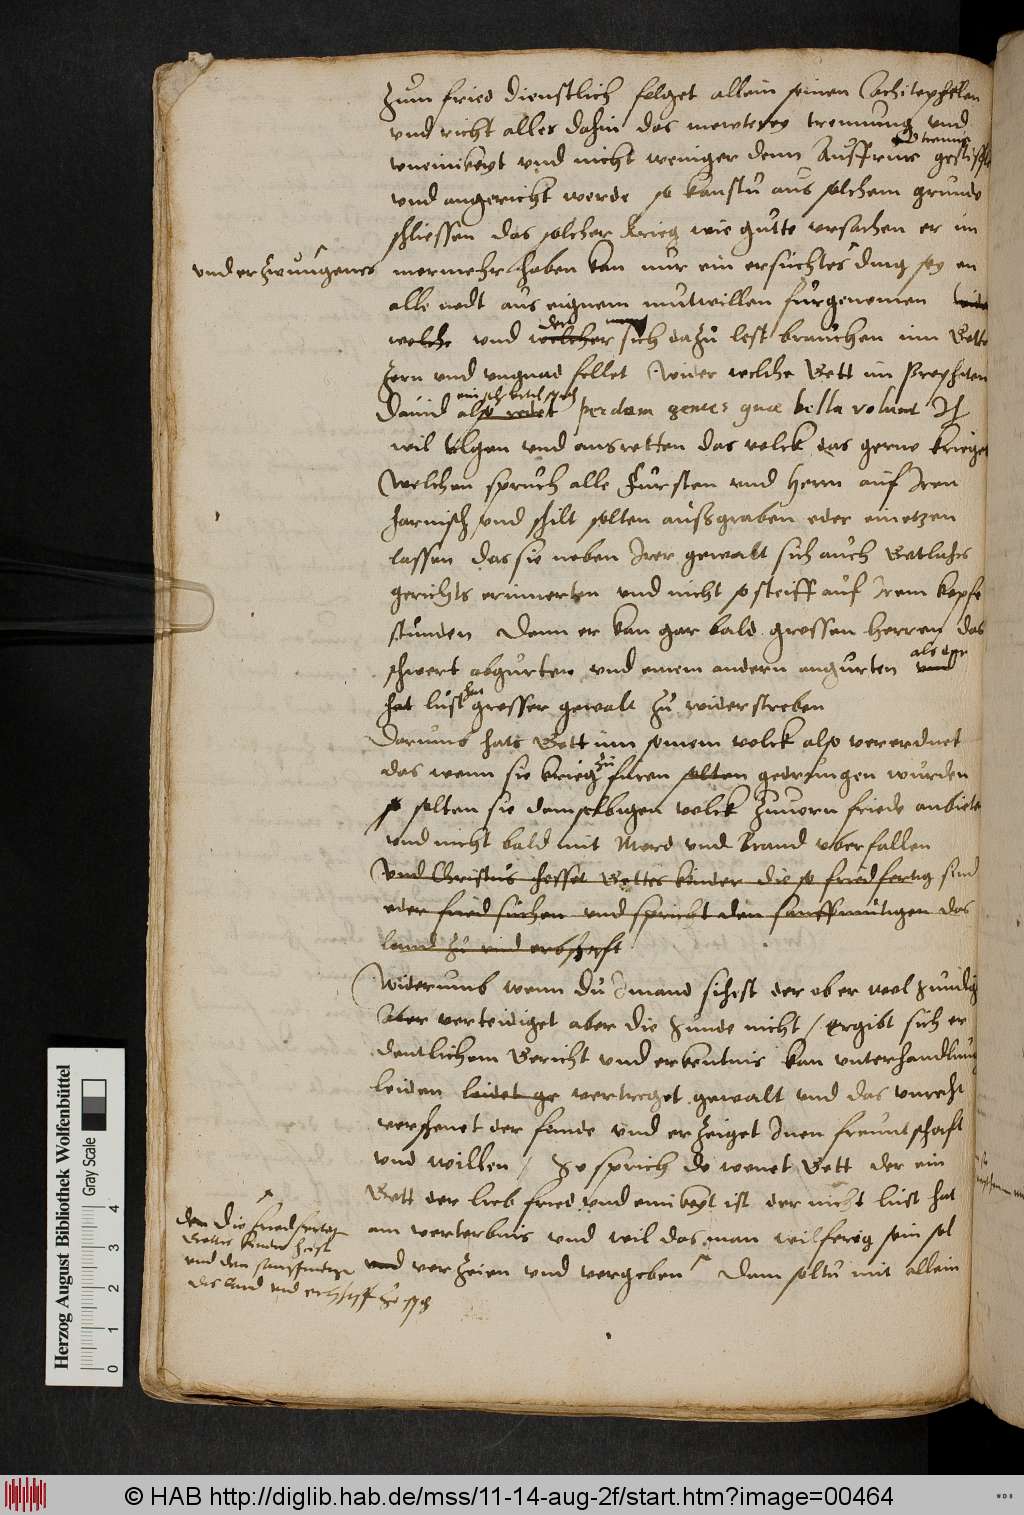 zum fried dienstlich folget allein seinen Achitophelen
vnd richt alles dahin das meuterey trennung vnd
vneinikeyt vnd nicht weniger denn Auffrur gestifft
vnd angericht werde so kanstu aus solchem grunde
schliessen das solcher krieg wie gutte vrsachen er im
vnd erzwungenes
mermehr haben kan nur ein ersuchtes ding sey on
alle nodt aus eignem mutwillen furgenomen
welche vnd welcher der sich dazu lest brauchen inn Gottes
zorn vnd vngnad fellet Wider welche Gott im Propheten
Dauid also redet perdam gentes quae bella volunt Ich
wil tilgen vnd ausrotten das volck das gerne krieget
Welchen spruch alle Fursten vnd Herrn auf Iren
harnisch vnd schilt solten aussgraben oder einetzen
lassen das sie neben Irer gewalt sich auch Gotlichs
gerichts erinnerten vnd nicht so steiff auf Irem kopfe
stunden Denn er kan gar bald grossen Herren das
schwert abgurten vnd einem andern angurten vnd
hat lust grosser gewalt zu widerstreben
Darumb hats Gott inn seinem volck also verordnet
das wenn sie krieg zu furen solten gedrungen wurden
so solten sie demselbigen volck zuuorn friede anbieten
vnd nicht bald mit Mord vnd Brand vberfallen
Vnd Christus heisset Gottes kinder die so friedfertig sind
oder fried suchen vnd spricht den sanfftmutigen das
land zu vnd erbschafft
Widerumb wenn du Imand sihest der ob er wol sundig
Aber verteidiget aber die sunde nicht / ergibt sich or
dentlichem Gericht vnd erkentnis kan vnterhandlung
leiden leidet ge vertreget gewalt vnd das vnrecht
versonet der feinde vnd erzeiget Inen freuntschaft
vnd willen / So sprich do wonet Gott der ein
Gott der lieb fried vnd einikeyt ist der nicht lust hat
am verterbnis vnd wil das man wilferig sein sol
vnd verzeien vnd vergeben Dem soltu mit allein
den die friedfertig
Gottes kinder heist
vnd den sanfftmutige
das land vnd erbschafft zu
Herzog August Bibliothek Wolfenbüttel
Gray Scale
0 1 2 3 4
© HAB http://diglib.hab.de/mss/11-14-aug-2f/start.htm?image=00464